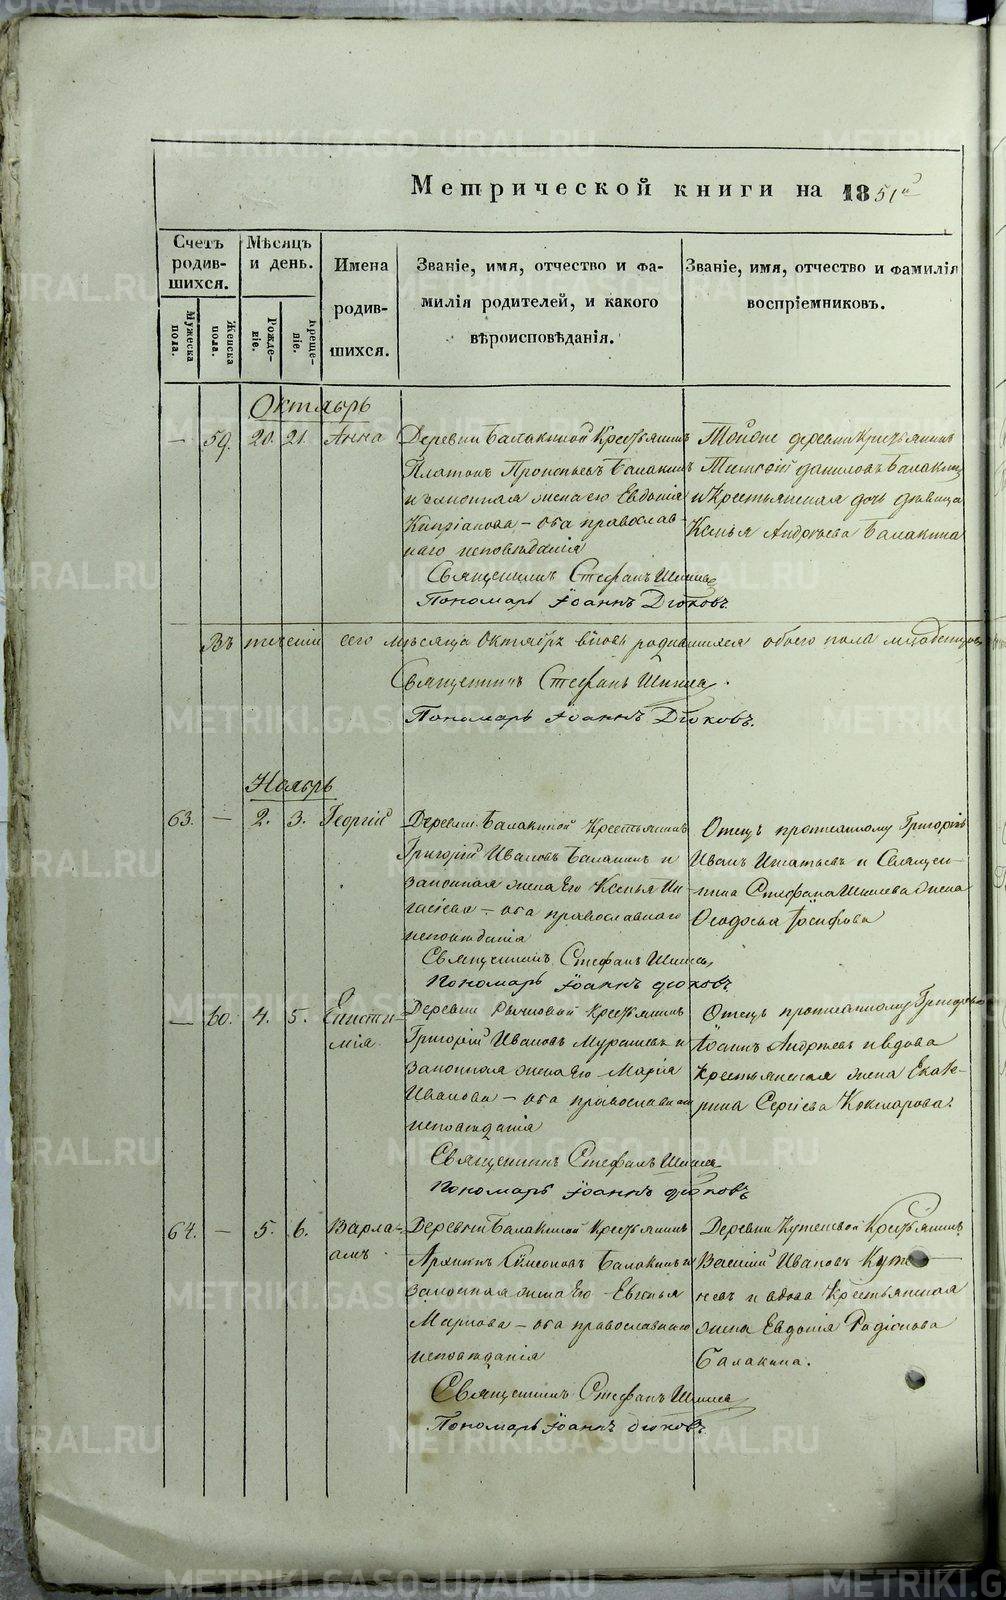 Метрической книги на 1851й
Счетъ родив-шихся.
Мѣсяцъ и день.
Имена родив-шихся.
Званіе, имя, отчество и фа-
милія родителей, и какого
вѣроисповѣданія.
Званіе, имя, отчество и фамилія
воспріемниковъ.
Мужеска пола.
Женска пола.
Рожде-ніе.
Креще-ніе.
Октябрь
— 59. 20. 21. Анна
Деревни Балакиной Крестьянинъ
Платонъ Прокопьевъ Балакинъ
и законная жена его Евдокія
Кипріанова — оба православ-
наго исповѣданія
Тойже деревни Крестьянинъ
Даниловъ Балакинъ
и Крестьянская дочь дѣвица
Ксенья Андреева Балакина
Священникъ Стефанъ
Пономарь Іоаннъ Дюковъ.
Въ теченіи сего мѣсяца Октября вновь родившихся обоего пола младенцовъ
Священникъ Стефанъ
Пономарь Іоаннъ Дюковъ.
Ноябрь
63. — 2. 3. Георгій
Деревни Балакиной Крестьянинъ
Григорій Ивановъ Балакинъ и
законная жена Его Ксенья Иг-
натіева — оба православнаго
исповѣданія
Отецъ прописанному Григорію
Иванъ Игнатьевъ и Священ-
ника Стефана жена
Ѳеодосья Іосифова
Священникъ Стефанъ
Пономарь Іоаннъ Дюковъ.
— 60. 4. 5. Еписти-
мія.
Деревни Крестьянинъ
Григорій Ивановъ и
законная жена Его Марія
Иванова — оба православнаго
исповѣданія
Отецъ прописанному Григорью
Іоаннъ Андреевъ и вдова
Крестьянская жена Екате-
рина Сергіева
Священникъ Стефанъ
Пономарь Іоаннъ Дюковъ
64. — 5. 6. Варла-
амъ.
Деревни Балакиной Крестьянинъ
Архипъ Симеоновъ Балакинъ и
законная жена Его Евгенья
Маркова — оба православнаго
исповѣданія
Деревни Кутеневой Крестьянинъ
Василій Ивановъ Куте-
невъ и вдова Крестьянская
жена Евдокія Родіонова
Балакина.
Священникъ Стефанъ
Пономарь Іоаннъ Дюковъ.
METRIKI.GASO-URAL.RU